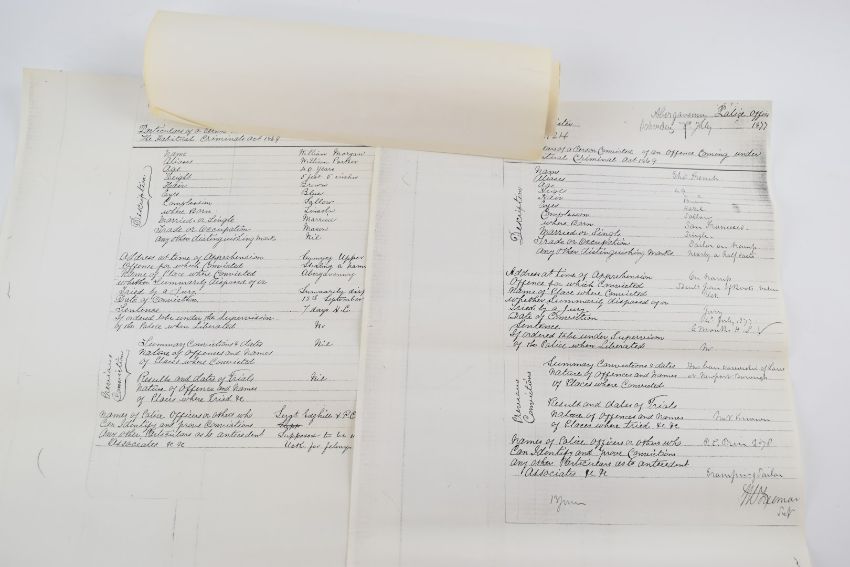 Particulars of a Person
The Habitual Criminals Act 1869
Description
Name William Morgan
Aliases William Parker
Age 40 Years
Height 5 feet 5 inches
Hair Brown
Eyes Blue
Complexion Sallow
Where Born Lincoln
Married or Single Married
Trade or Occupation Mason
Any other distinguishing mark Nil
Address at time of Apprehension Upper
Offence for which Convicted Stealing a ham
Name of Place where Convicted Abergavenny
Whether Summarily disposed of or
Tried by a Jury Summarily dis
Date of Conviction 12th September
Sentence 7 days H.L.
If ordered to be under the Supervision
of the Police when Liberated No
Previous Convictions
Summary Convictions & dates Nil
Nature of Offences and Names
of Places where Convicted
Results and dates of Trials Nil
Nature of Offence and Names
of Places where Tried &c
Names of Police Officers or others who Sergt Edghill & P.C
Can Identify and prove Convictions
Any other Particulars as to antecedent Supposed to be
Associates &c &c
Abergavenny Police Office
July 1877
24
of a Person Convicted of an Offence Coming under
Criminal Act 1869
Description
Name
Aliases
Age 49
Height
Hair
Eyes Hazel
Complexion Sallow
Where Born San Francisco
Married or Single Single
Trade or Occupation Tailor on tramp
Any other Distinguishing Marks nearly a half caste
Address at time of Apprehension On tramp
Offence for which Convicted
Name of Place where Convicted
Whether Summarily disposed of or
Tried by a Jury Jury
Date of Conviction July 1877
Sentence 6 Months H.L.
If ordered to be under Supervision
of the Police when Liberated No
Previous Convictions
Summary Convictions & dates
Nature of Offences and Names or Newport Borough
of Places where Convicted
Results and dates of Trials
Nature of Offences and Names Not Known
of Places where Tried &c &c
Names of Police officers or others who P.C.
Can Identify and Prove Convictions
Any other Particulars as to antecedent
Associates &c &c Tramping Tailor
Freeman
Supt